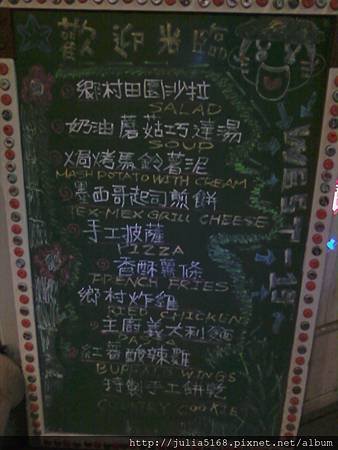 歡迎光臨
鄉村田園沙拉
SALAD
奶油蘑菇巧達湯
SOUP
焗烤馬鈴薯泥
MASH POTATO WITH CREAM
墨西哥起司煎餅
TEX-MEX GRILL CHEESE
手工披薩
PIZZA
香酥薯條
FRENCH FRIES
鄉村炸雞
FRIED CHICKEN
主廚義大利麵
PASTA
紅薯酸辣雞
BUFFALO WINGS
特製手工餅乾
COUNTRY COOKIE
WEST
http://julia5168.pixnet.net/album